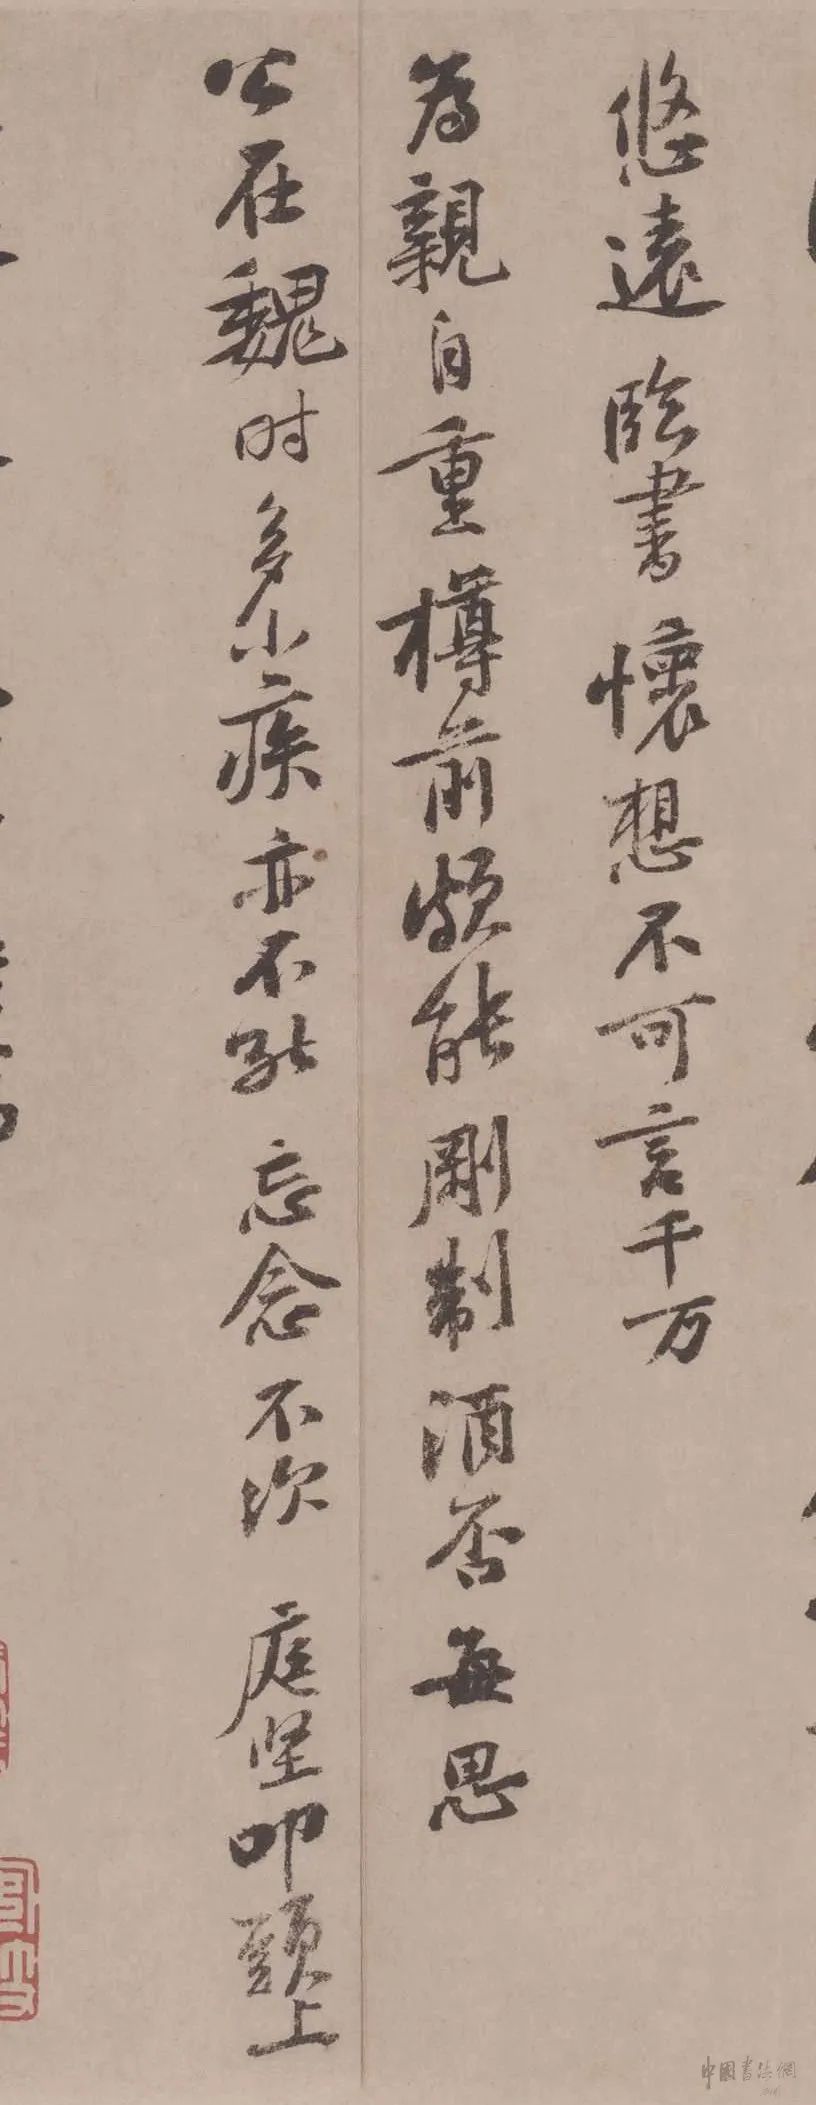 悠遠臨書懷想不可言千万
為親自重樽前頗能剛制酒否每思
公在魏时多小疾亦不能忘念不次庭坚叩頭上
中國書法網